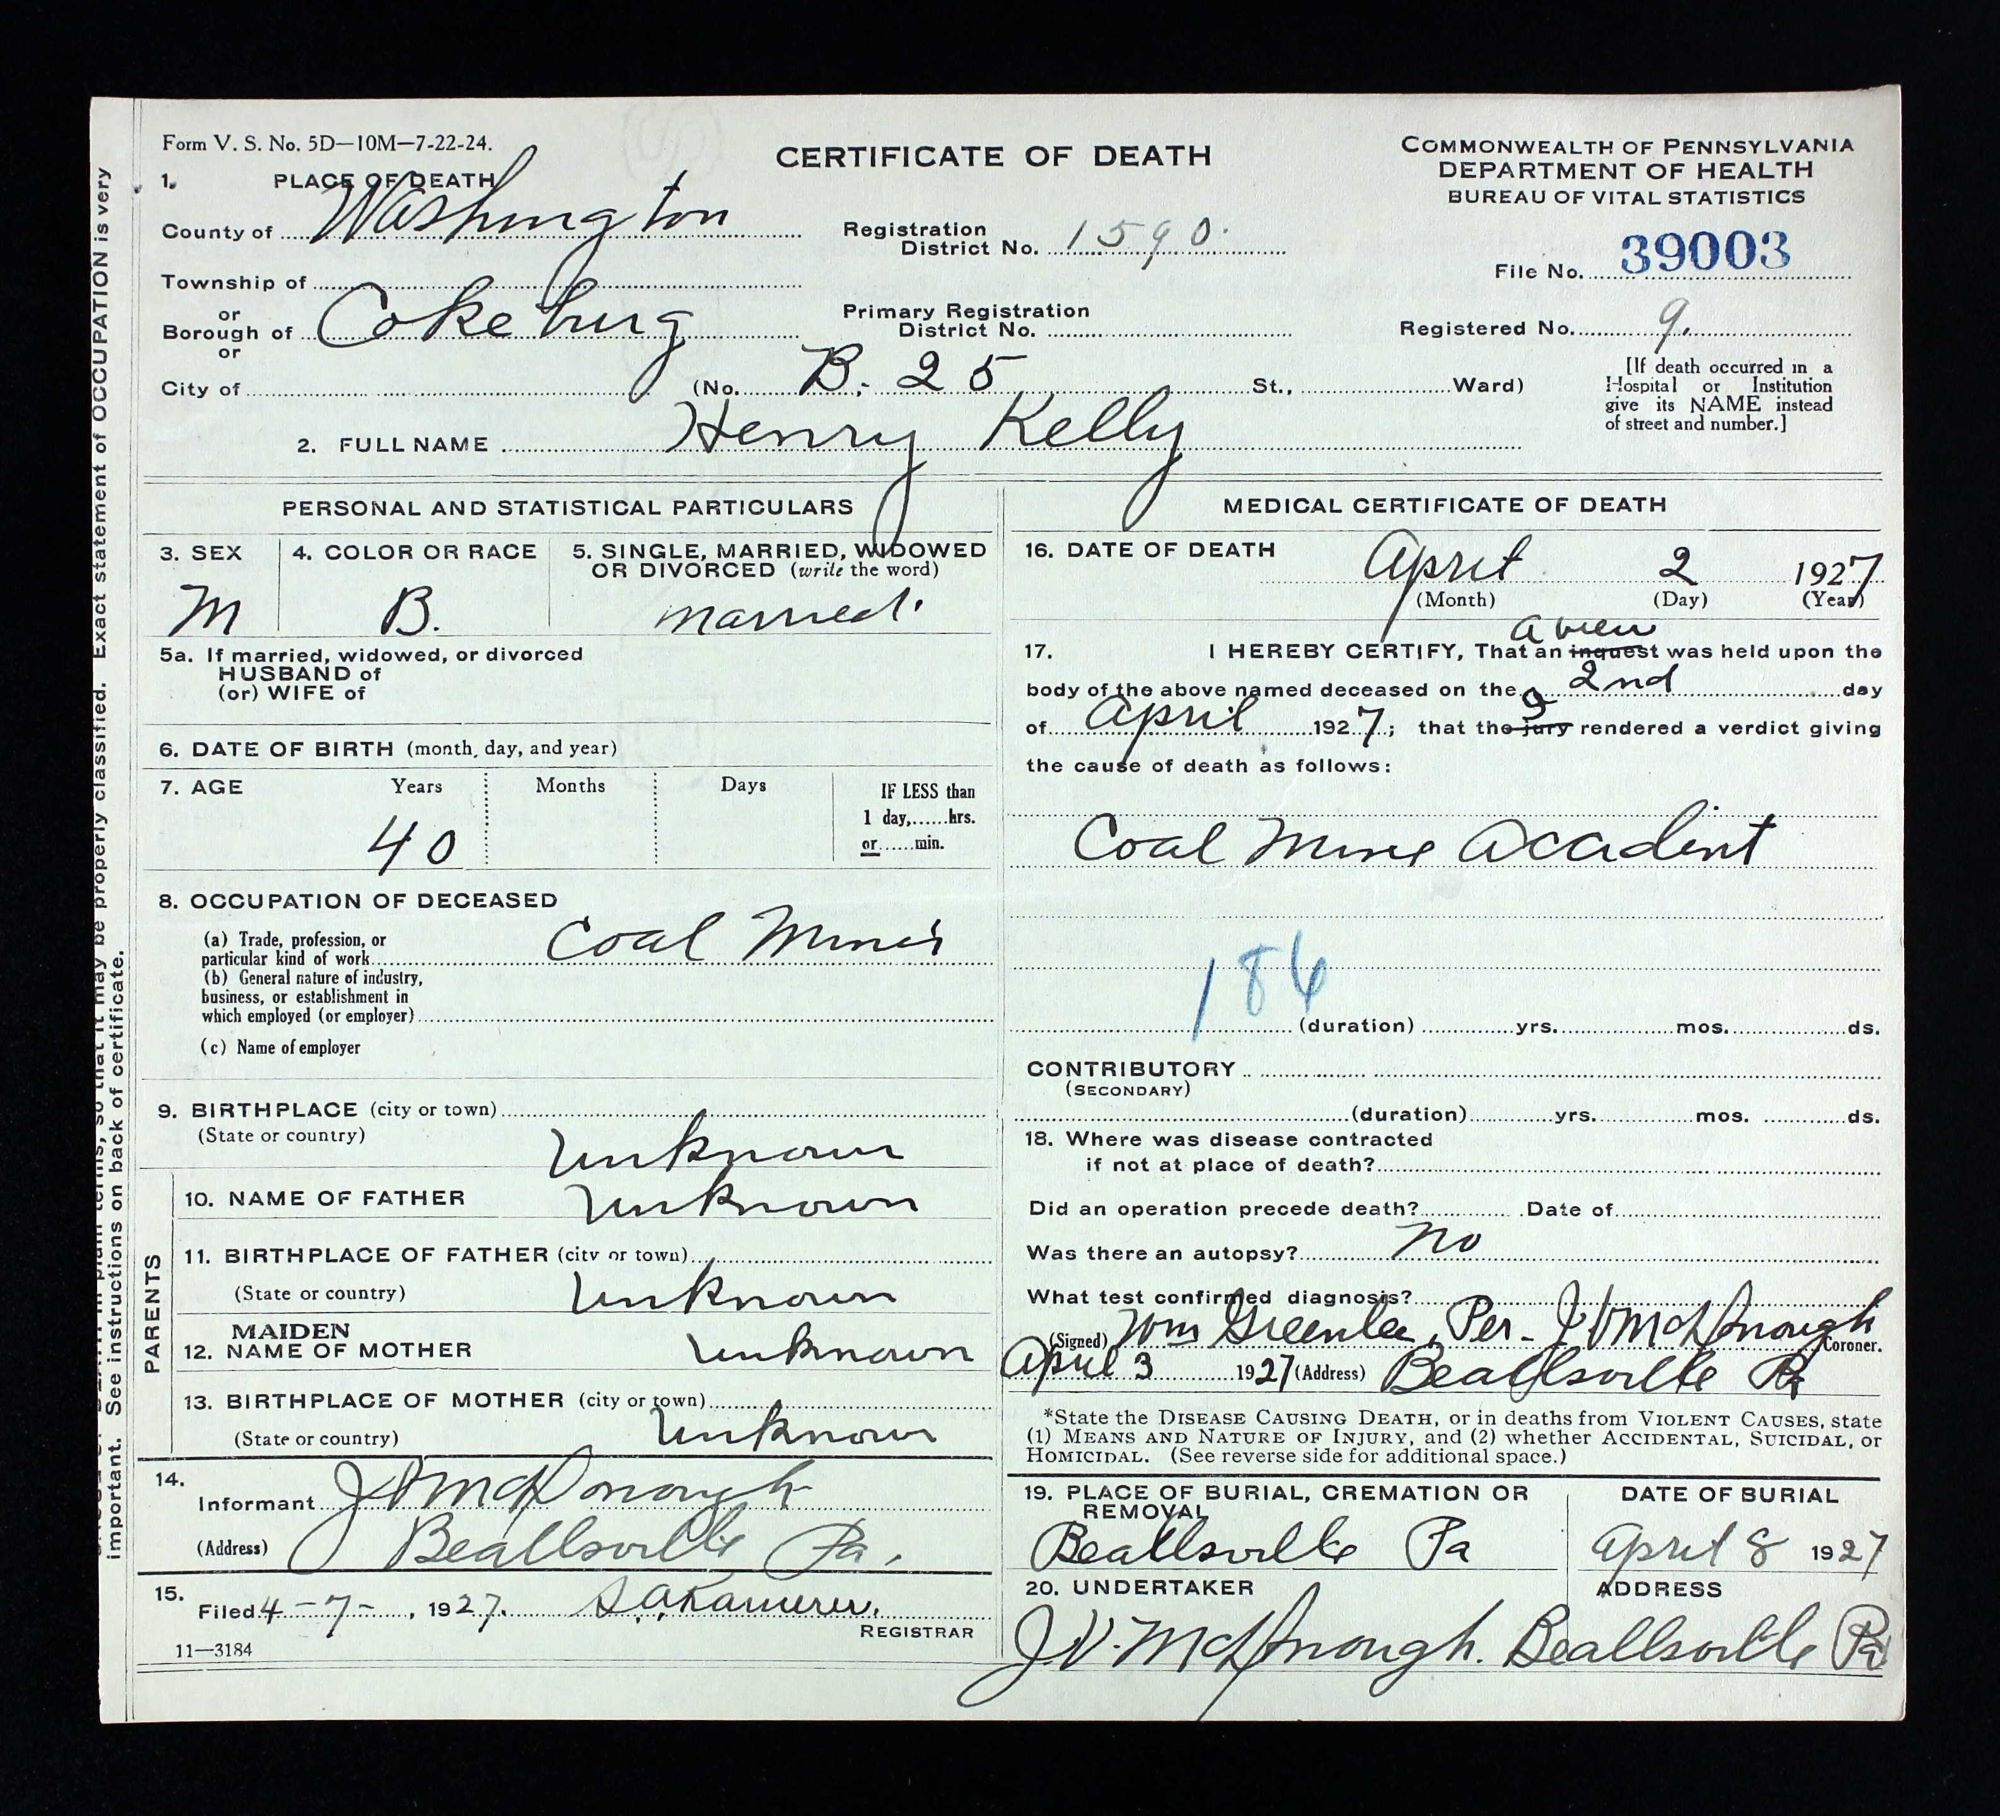 Form V. S. No. 5D—10M—7-22-24.
CERTIFICATE OF DEATH
COMMONWEALTH OF PENNSYLVANIA
DEPARTMENT OF HEALTH
BUREAU OF VITAL STATISTICS
1. PLACE OF DEATH
County of Washington
Registration District No. 1590.
File No. 39003
Township of
or
Borough of Cokeburg
Primary Registration District No.
Registered No. 9.
or
City of (No. B-25 St., Ward)
[If death occurred in a
Hospital or Institution
give its NAME instead
of street and number.]
2. FULL NAME Henry Kelly
PERSONAL AND STATISTICAL PARTICULARS
3. SEX
M
4. COLOR OR RACE
B.
5. SINGLE, MARRIED, WIDOWED
OR DIVORCED (write the word)
married.
5a. If married, widowed, or divorced
HUSBAND of
(or) WIFE of
6. DATE OF BIRTH (month, day, and year)
7. AGE Years Months Days
40
IF LESS than
1 day,......hrs.
or......min.
8. OCCUPATION OF DECEASED
(a) Trade, profession, or
particular kind of work Coal Miner
(b) General nature of industry,
business, or establishment in
which employed (or employer)
(c) Name of employer
9. BIRTHPLACE (city or town)
(State or country) Unknown
PARENTS
10. NAME OF FATHER Unknown
11. BIRTHPLACE OF FATHER (city or town)
(State or country) Unknown
MAIDEN
12. NAME OF MOTHER Unknown
13. BIRTHPLACE OF MOTHER (city or town)
(State or country) Unknown
14.
Informant J V McDonough
(Address) Beallsville Pa.
15.
Filed 4-7-, 1927. S.A.Kamerer.
REGISTRAR
11—3184
MEDICAL CERTIFICATE OF DEATH
16. DATE OF DEATH April 2 1927
(Month) (Day) (Year)
a view
17. I HEREBY CERTIFY, That an inquest was held upon the
body of the above named deceased on the 2nd day
of April 1927; that the jury rendered a verdict giving
the cause of death as follows:
Coal Mine Accadint
186
(duration) yrs. mos. ds.
CONTRIBUTORY
(SECONDARY)
(duration) yrs. mos. ds.
18. Where was disease contracted
if not at place of death?
Did an operation precede death? Date of
Was there an autopsy? no
What test confirmed diagnosis?
(Signed) Wm Greenlee, Per- J V McDonough Coroner.
April 3 1927 (Address) Beallsville Pa
*State the DISEASE CAUSING DEATH, or in deaths from VIOLENT CAUSES, state
(1) MEANS AND NATURE OF INJURY, and (2) whether ACCIDENTAL, SUICIDAL, or
HOMICIDAL. (See reverse side for additional space.)
19. PLACE OF BURIAL, CREMATION OR
REMOVAL
Beallsville Pa
DATE OF BURIAL
April 8 1927
20. UNDERTAKER
J.V. McDonough.
ADDRESS
Beallsville Pa
properly classified. Exact statement of OCCUPATION is very
important. See instructions on back of certificate.